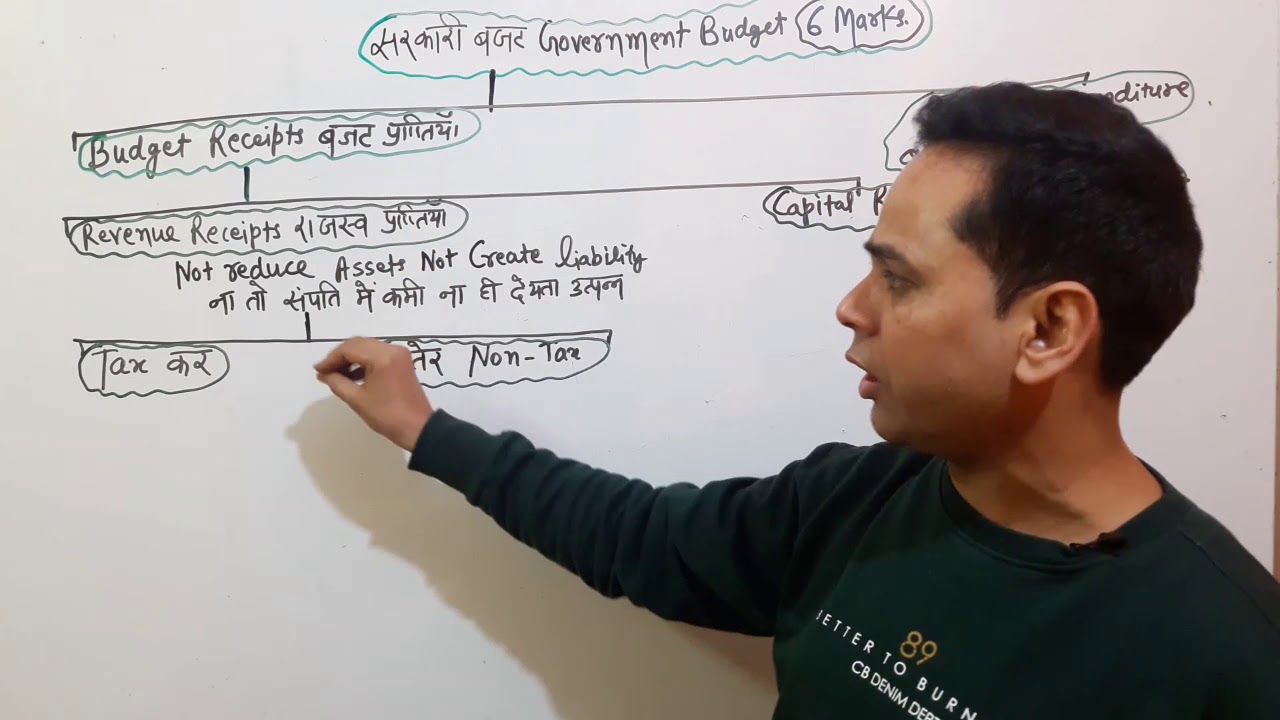 सरकारी बजट Government Budget (6 Marks.)
Budget Receipts बजट प्राप्तियाँ
Revenue Receipts राजस्व प्राप्तियाँ
Capital
Not reduce Assets Not Create liability
ना तो संपति में कमी ना ही देयता उत्पन्न
Tax कर
Non-Tax
89
BETTER TO BURN
CB DENIM DEPT